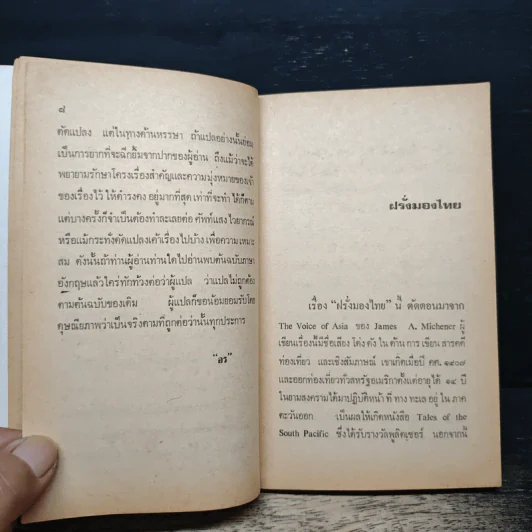 ๘
ดัดแปลง แต่ในทางด้านหรรษา ถ้าแปลอย่างนั้นย่อม
เป็นการยากที่จะฉีกยิ้มจากปากของผู้อ่าน ถึงแม้ว่าจะได้
พยายามรักษาโครงเรื่องสำคัญและความมุ่งหมายของเจ้า
ของเรื่องไว้ ให้ดำรงคง อยู่มากที่สุด เท่าที่จะทำ ได้ก็ตาม
แต่บางครั้งก็จำเป็นต้องทำละเลยต่อ ศัพท์แสง ไวยากรณ์
หรือแม้กระทั่งดัดแปลงเค้าเรื่องไปบ้าง เพื่อความ เหมาะ
สม ดังนั้นถ้าท่านผู้อ่านท่านใดไปอ่านพบต้นฉบับภาษา
อังกฤษแล้วใคร่ทักท้วงต่อว่าผู้แปล ว่าแปลไม่ถูกต้อง
ตามต้นฉบับของเดิม ผู้แปลก็ขอน้อมยอมรับโดย
ดุษณียภาพว่าเป็นจริงตามที่ถูกต่อว่านั้นทุกประการ
"อร"
ฝรั่งมองไทย
เรื่อง "ฝรั่งมองไทย" นี้ ตัดตอนมาจาก
The Voice of Asia ของ James A. Michener ผู้
เขียนเรื่องนี้มีชื่อเสียง โด่งดัง ใน ด้าน การ เขียน สารคดี
ท่องเที่ยว และเชิงสัมภาษณ์ เขาเกิดเมื่อปี คศ. ๑๙๐๗
และออกท่องเที่ยวทั่วสหรัฐอเมริกาตั้งแต่อายุได้ ๑๔ ปี
ในยามสงครามได้มาปฏิบัติหน้า ที่ ทาง ทะเล อยู่ ใน ภาค
ตะวันออก เป็นผลให้เกิดหนังสือ Tales of the
South Pacific ซึ่งได้รับรางวัลพูลิตเซอร์ นอกจากนี้